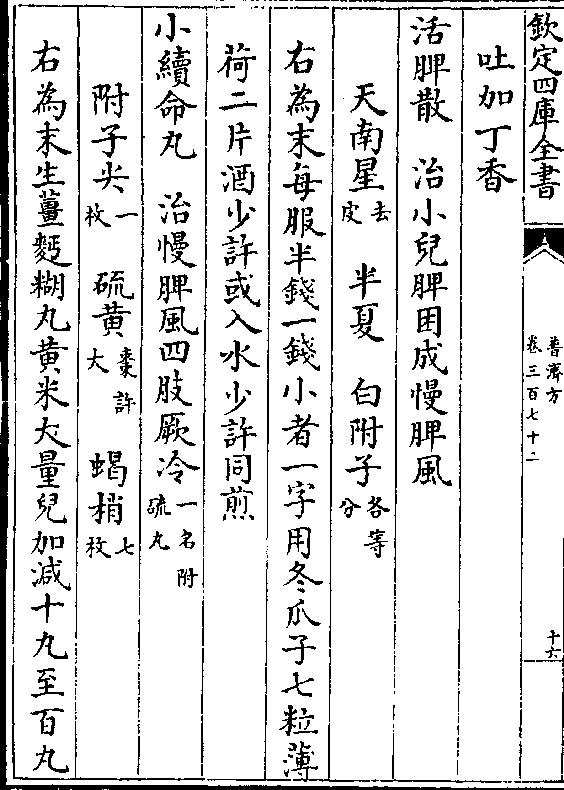 欽定四庫全書
普濟方
卷三百七十二
十六
吐加丁香
活脾散　治小兒脾困成慢脾風
天南星去皮　半夏　白附子各等分
右為末每服半錢一錢小者一字用冬瓜子七粒薄
荷二片酒少許或入水少許同煎
小續命丸　治慢脾風四肢厥冷一名附硫丸
附子尖一枚　硫黄棗許大　蝎梢七枚
右為末生薑麪糊丸黄米大量兒加減十丸至百丸